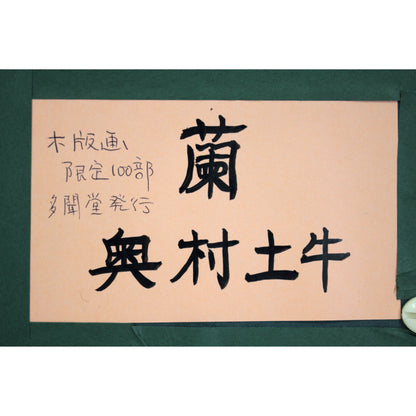 木版画
限定100部
多聞堂発行
蘭
奥村土牛